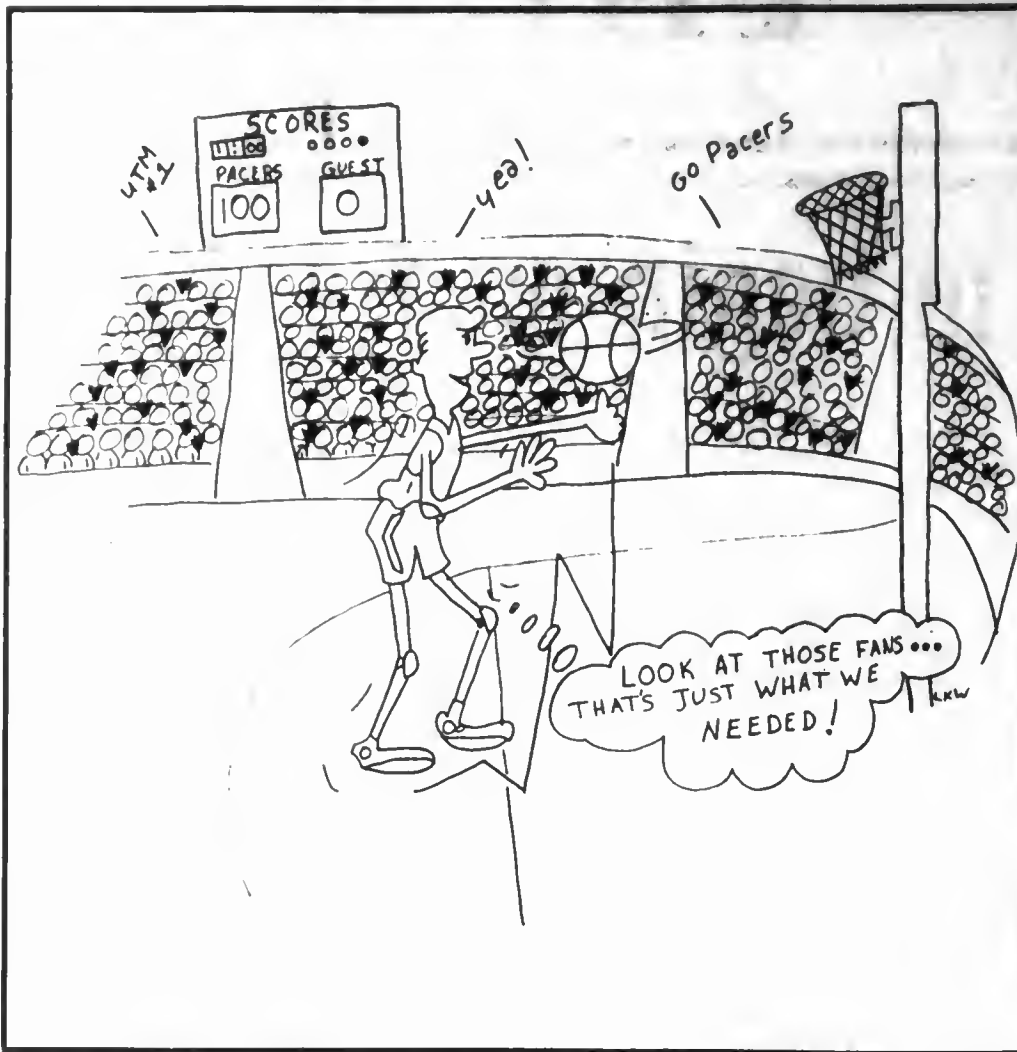 SCORES
PACERS GUEST
100 0
UTM
#1
yea!
Go Pacers
LOOK AT THOSE FANS...
THAT'S JUST WHAT WE
NEEDED!
KKW